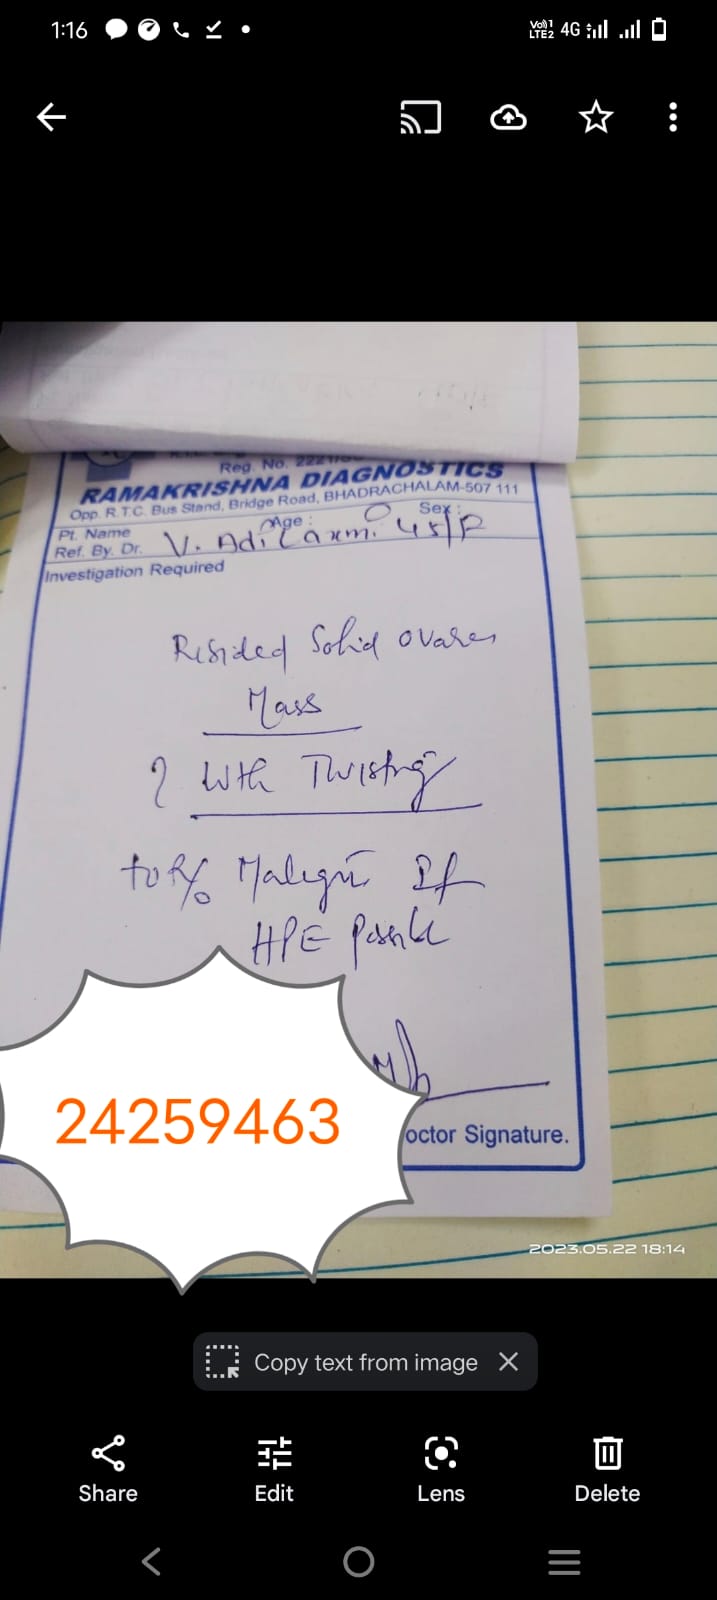 1:16
Vo)) 1 LTE2 4G
Reg. No.
RAMAKRISHNA DIAGNOSTICS
Opp. R.T.C. Bus Stand, Bridge Road, BHADRACHALAM-507 111
Pt. Name Age : Sex :
Ref. By. Dr. V. Adi Laxmi 45/F
Investigation Required
Resided Solid ovaren
Mass
? With Twisting
to R/o If
HPE
24259463
octor Signature.
2023.05.22 18:14
Copy text from image
Share Edit Lens Delete